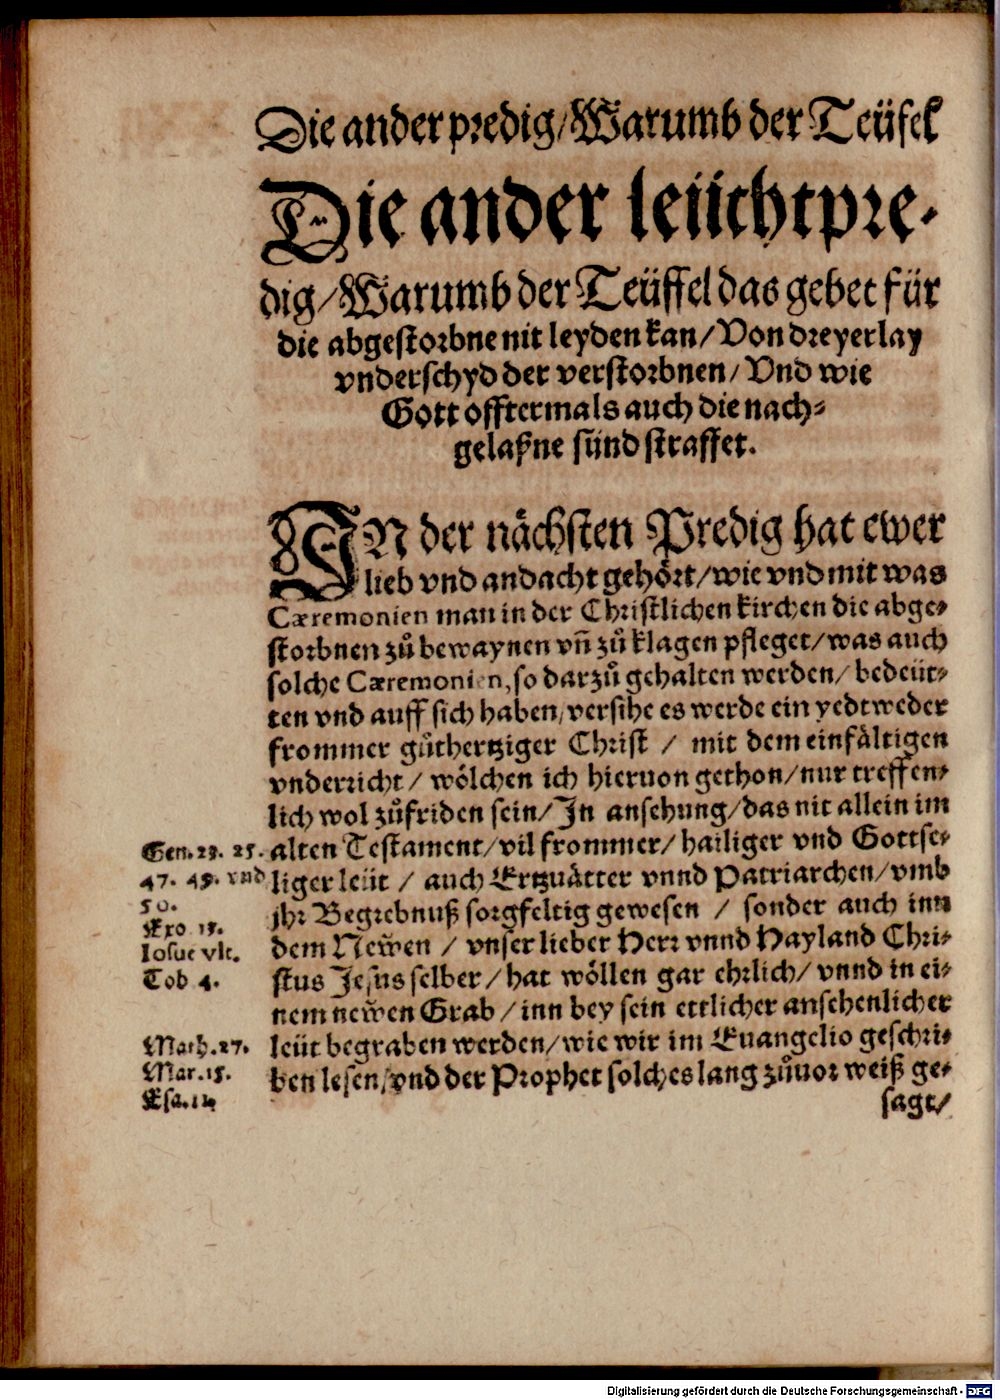 Die ander predig/Warumb der Teüfel
Die ander leiichtpre-
dig/Warumb der Teüffel das gebet für
die abgestorbne nit leyden kan/Von dreyerlay
vnderschyd der verstorbnen/Vnd wie
Gott offtermals auch die nach-
gelaßne sünd straffet.
IN der nächsten Predig hat ewer
lieb vnd andacht gehört/wie vnd mit was
Cæremonien man in der Christlichen kirchen die abge-
storbnen zů bewaynen vñ zů klagen pfleget/was auch
solche Cæremonien, so darzů gehalten werden/ bedeüt-
ten vnd auff sich haben/versihe es werde ein yedtweder
frommer gůthertziger Christ / mit dem einfältigen
vnderricht/ wölchen ich hieruon gethon/nur treffen-
lich wol zůfriden sein/In ansehung/das nit allein im
Gen. 23. 25. alten Testament/vil frommer/ hailiger vnd Gottse-
47. 49. vnd liger leüt / auch Ertzuätter vnnd Patriarchen/vmb
50. jhr Begrebnuß sorgfeltig gewesen / sonder auch inn
Exo 13.
Iosue vlt. dem Newen / vnser lieber Herr vnnd Hayland Chri-
Tob 4. stus Jesus selber/hat wöllen gar ehrlich/ vnnd in ei-
nem newen Grab/inn bey sein ettlicher ansehenlicher
Math.27. leüt begraben werden/wie wir im Euangelio geschri-
Mar.15. ben lesen/vnd der Prophet solches lang zůuor weiß ge-
Esa.
sagt/
Digitalisierung gefördert durch die Deutsche Forschungsgemeinschaft - DFG